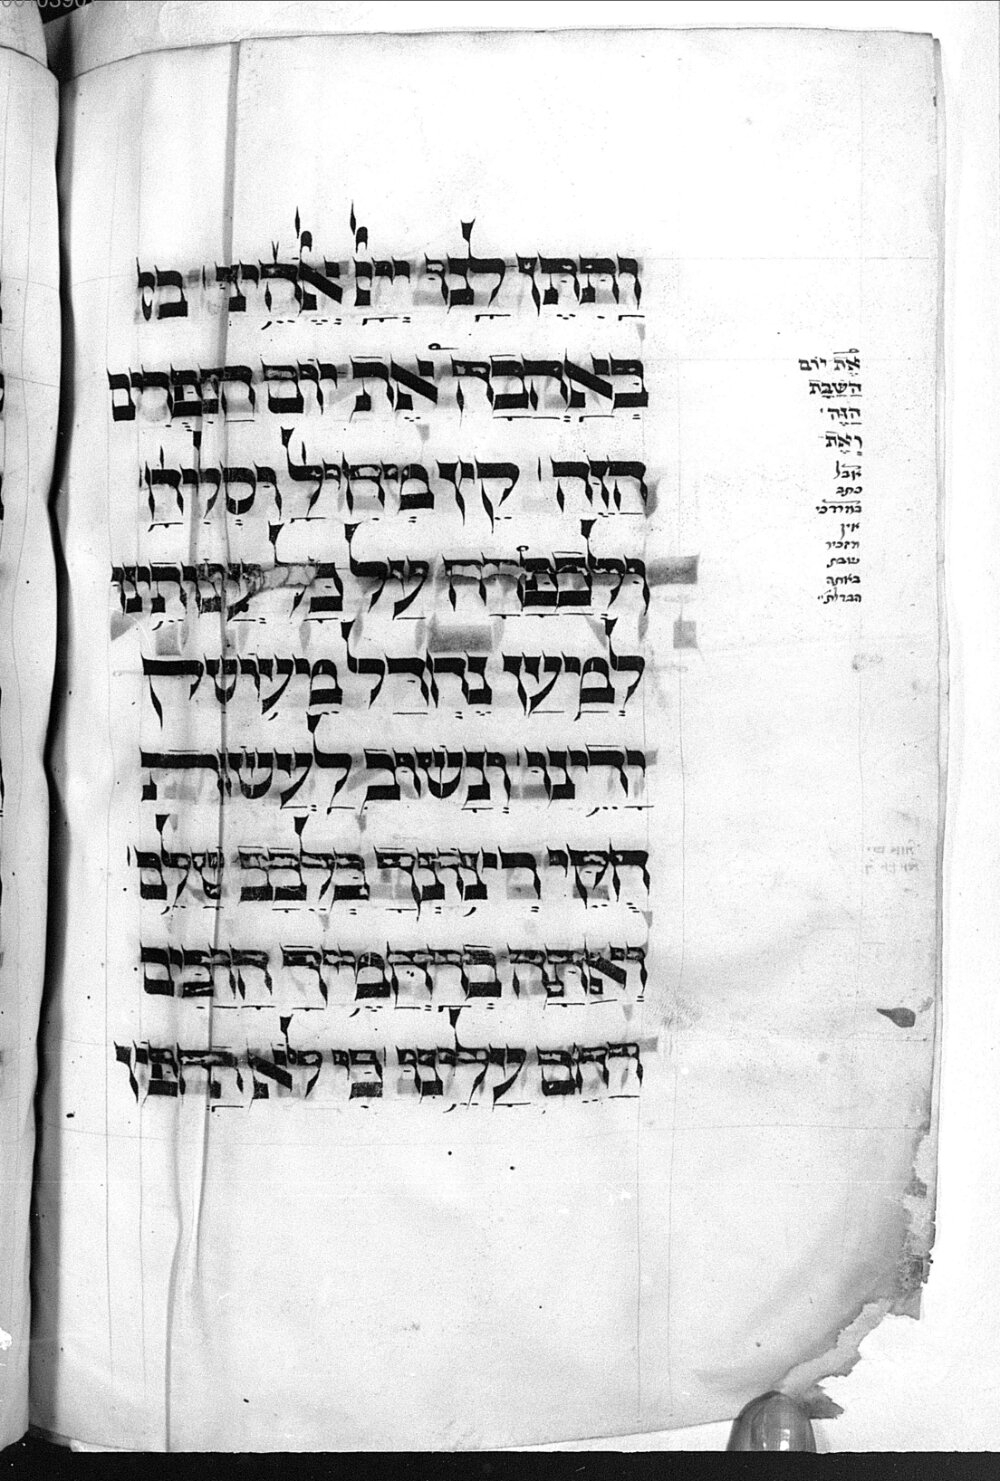 ותתן לנו ייי אלהינו
באהבה את יום הכפרים
הזה קץ מחיל וסליח
ולכפרה על כל עונותינו
למען נחדל מעושק
ידינו ונשוב לעשות
חקי רצונך בלבב שלם
ואתה ברחמיך הרבים
רחם עלינו כי לא תחפץ
את יום
השבת
הזה
ואת
אבל
כתב
במרדכי
אין
מזכיר
שבת
באותה